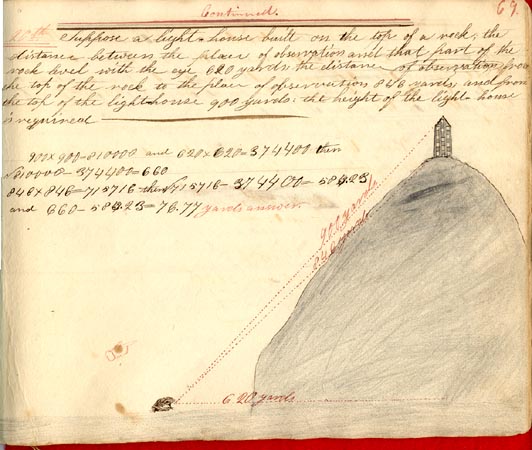 Continued. 69.
10th Suppose a light-house built on the top of a rock; the
distance between the place of observation and that part of the
rock level with the eye 620 yards the distance of observation from
the top of the rock to the place of observation 846 yards, and from
the top of the light-house 900 yards: the height of the light-house
is required
900x900=810000 and 620x620=374400 then
√810000-374400=660
846x846=715716 then √715716-374400=584.23
and 660-584.23=76.77 yards answer
900 yards
846 yards
620 yards